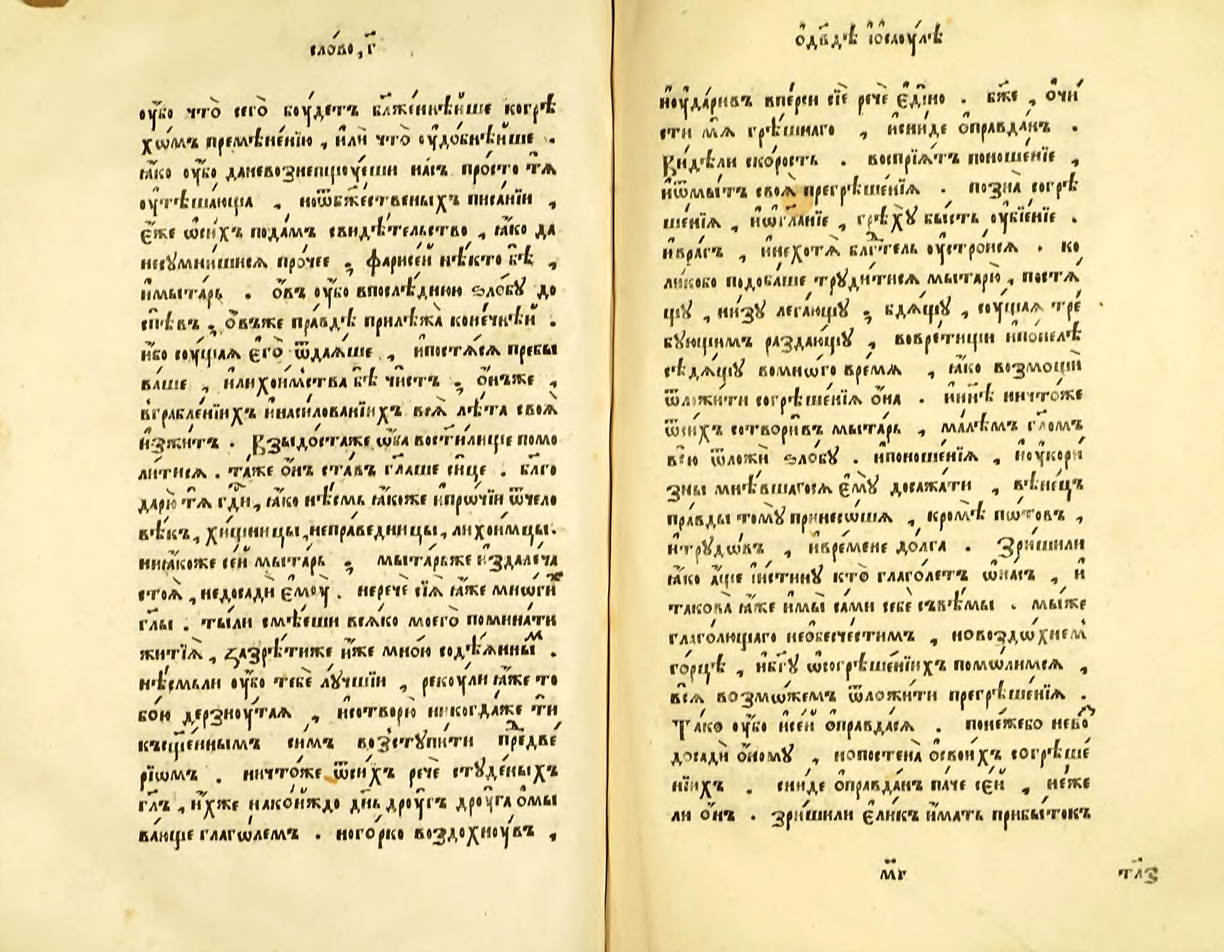 сло́во, г҃
ѹ҆́бо что̀ сего̀ боу́детъ бл҃же́ннѣйше когрѣ
хѡ́мъ премѣне́нїю , и҆лѝ что̀ ѹ҆до́бнѣйше .
ꙗ҆́ко ѹ҆́бо даневознепщꙋ́еши на́съ про́сто тѧ̀
ѹ҆тѣша́юща , ноѿбж҃е́ственыхъ писа́нїи ,
є҆́же ѿси́хъ пода́мъ свидѣ́тельство , ꙗ҆́ко да
несꙋмни́шисѧ про́чее ; фарисе́й нѣ́кто бѣ̀ ,
и҆мы́тарь . ѻ҆́въ ѹ҆́бо впослѣ́днюю ѕло́бꙋ до
спѣ́въ ; ѻ҆́въже пра́вдѣ прилѣжа̀ коне́чнѣй .
и҆́бо соу́щаѧ є҆го̀ ѿдаѧ́ше , и҆постѧ́сѧ пребы
ва́ше , и҆лихои́мства бѣ̀ чи́стъ ; ѻ҆́нъже ,
вграбле́нїихъ и҆наси́лованїихъ всѧ̀ лѣ́та своѧ̀
и҆зжи́тъ . Взыдо́стаже ѻ҆́ба вости́лище помо
ли́тисѧ . та́же ѻ҆́нъ ста́въ гл҃аше си́це . бл҃го
дарю̀ тѧ̀ гд҇и , ꙗ҆́ко нѣ́смь ꙗ҆́коже и҆про́чїи ѿчело
вѣ́къ , хи́щницы , непра́ведницы , лихои́мцы .
ниꙗ҆́коже се́й мы́тарь ; мы́тарьже и҆здале́ча
стоѧ̀ , недосадѝ є҆моу̀ . неречѐ сїѧ̀ ꙗ҆́же мнѡ́ги
гл҃ы . ты́ли смѣ́еши всѧ́ко моего̀ помина́ти
житїѧ̀ , зазрѣ́тиже и҆́же мно́ю содѣ́ѧнны .
нѣ́смьли ѹ҆́бо тебѐ лꙋ́чшїи , рекоу́ли ꙗ҆́же то
бо́ю дерзноу́таѧ , и҆сотворю̀ никогда́же ти
късщ҃е́ннымъ си́мъ возстꙋпи́ти предве́
рїѡмъ . ничто́же ѿси́хъ речѐ стꙋде́ныхъ
гл҃ъ , и҆́хже нако́йждо дн҃ь дроу́гъ дроу́га ѡ҆мы
ва́юще глаго́лемъ . ного́рко воздохноу́въ ,
ѻ҆дв҃дѣ і҆ѻсаоу́лѣ
и҆оуда́ривъ впе́рси сїѐ речѐ є҆ди́но . бж҃е , ѡ҆чи́
сти мѧ̀ грѣ́шнаго , и҆сни́де ѻ҆правда́нъ .
Ви́дѣли ско́рость . воспрїѧ́тъ поноше́нїе ,
и҆ѿмы́тъ своѧ̀ прегрѣше́нїѧ . позна̀ согрѣ
ше́нїѧ , и҆ѿгна́нїе , грѣхꙋ̀ бы́сть ѹ҆бїе́нїе .
и҆вра́гъ , и҆нехотѧ̀ бл҃гтель ѹ҆стро́исѧ . ко
ли́кобо подоба́ше трꙋди́тисѧ мы́тарю , постѧ́
щꙋ , ни́зꙋ лега́ющꙋ ; бдѧ́щꙋ , соу́щаѧ тре́
бꙋющимъ раздаю́щꙋ , вовре́тищи и҆попелѣ̀
сѣдѧ́щꙋ вомно́го времѧ , ꙗ҆́ко возмощѝ
ѿложи́ти согрѣше́нїѧ ѻ҆на̀ . и҆нн҃ѣ ничто́же
ѿси́хъ сотвори́въ мы́тарь , ма́лѣмъ гл҃омъ
всю̀ ѿложѝ ѕло́бꙋ . и҆поноше́нїѧ , и҆оукори́
зны мнѣ́вшагосѧ є҆мꙋ̀ досажа́ти , вѣне́цъ
пра́вды томꙋ̀ принесо́шѧ , кромѣ̀ по́товъ ,
и҆трꙋдо́въ , и҆вре́мене до́лга . Зри́шили
ꙗ҆́ко а҆́ще и҆́стинꙋ кто̀ глаго́летъ ѡ҆на́съ , и҆
такова̀ ꙗ҆́же и҆мы̀ са́ми себѐ свѣ́мы . мы́же
глаго́лющаго необесче́стимъ , новоздо́хнемъ
го́рцѣ , и҆бг҃ꙋ ѡ҆согрѣше́нїихъ помо́лимсѧ ,
всѧ̀ возмо́жемъ ѿложи́ти прегрѣше́нїѧ .
Та́ко ѹ҆́бо и҆се́й ѻ҆правда́сѧ . поне́жебо небо
досадѝ ѻ҆́номꙋ , нопостена̀ ѻ҆свои́хъ согрѣше́
нїихъ . сни́де ѻ҆правда́нъ па́че се́й , не́же
ли ѻ҆́нъ . Зри́шили є҆ли́къ и҆́мать прибы́токъ
м҃г
тл҃з